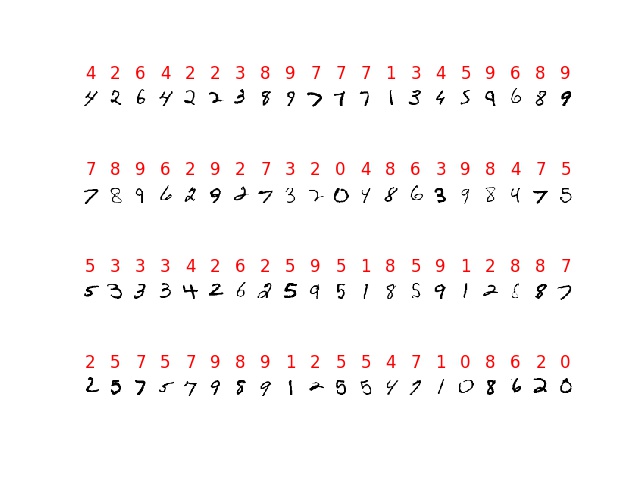 4 2 6 4 2 2 3 8 9 7 7 7 1 3 4 5 9 6 8 9
4 2 6 4 2 2 3 8 9 7 7 7 1 3 4 5 9 6 8 9
7 8 9 6 2 9 2 7 3 2 0 4 8 6 3 9 8 4 7 5
7 8 9 6 2 9 2 7 3 2 0 4 8 6 3 9 8 4 7 5
5 3 3 3 4 2 6 2 5 9 5 1 8 5 9 1 2 8 8 7
5 3 3 3 4 2 6 2 5 9 5 1 8 5 9 1 2 8 8 7
2 5 7 5 7 9 8 9 1 2 5 5 4 7 1 0 8 6 2 0
2 5 7 5 7 9 8 9 1 2 5 5 4 7 1 0 8 6 2 0